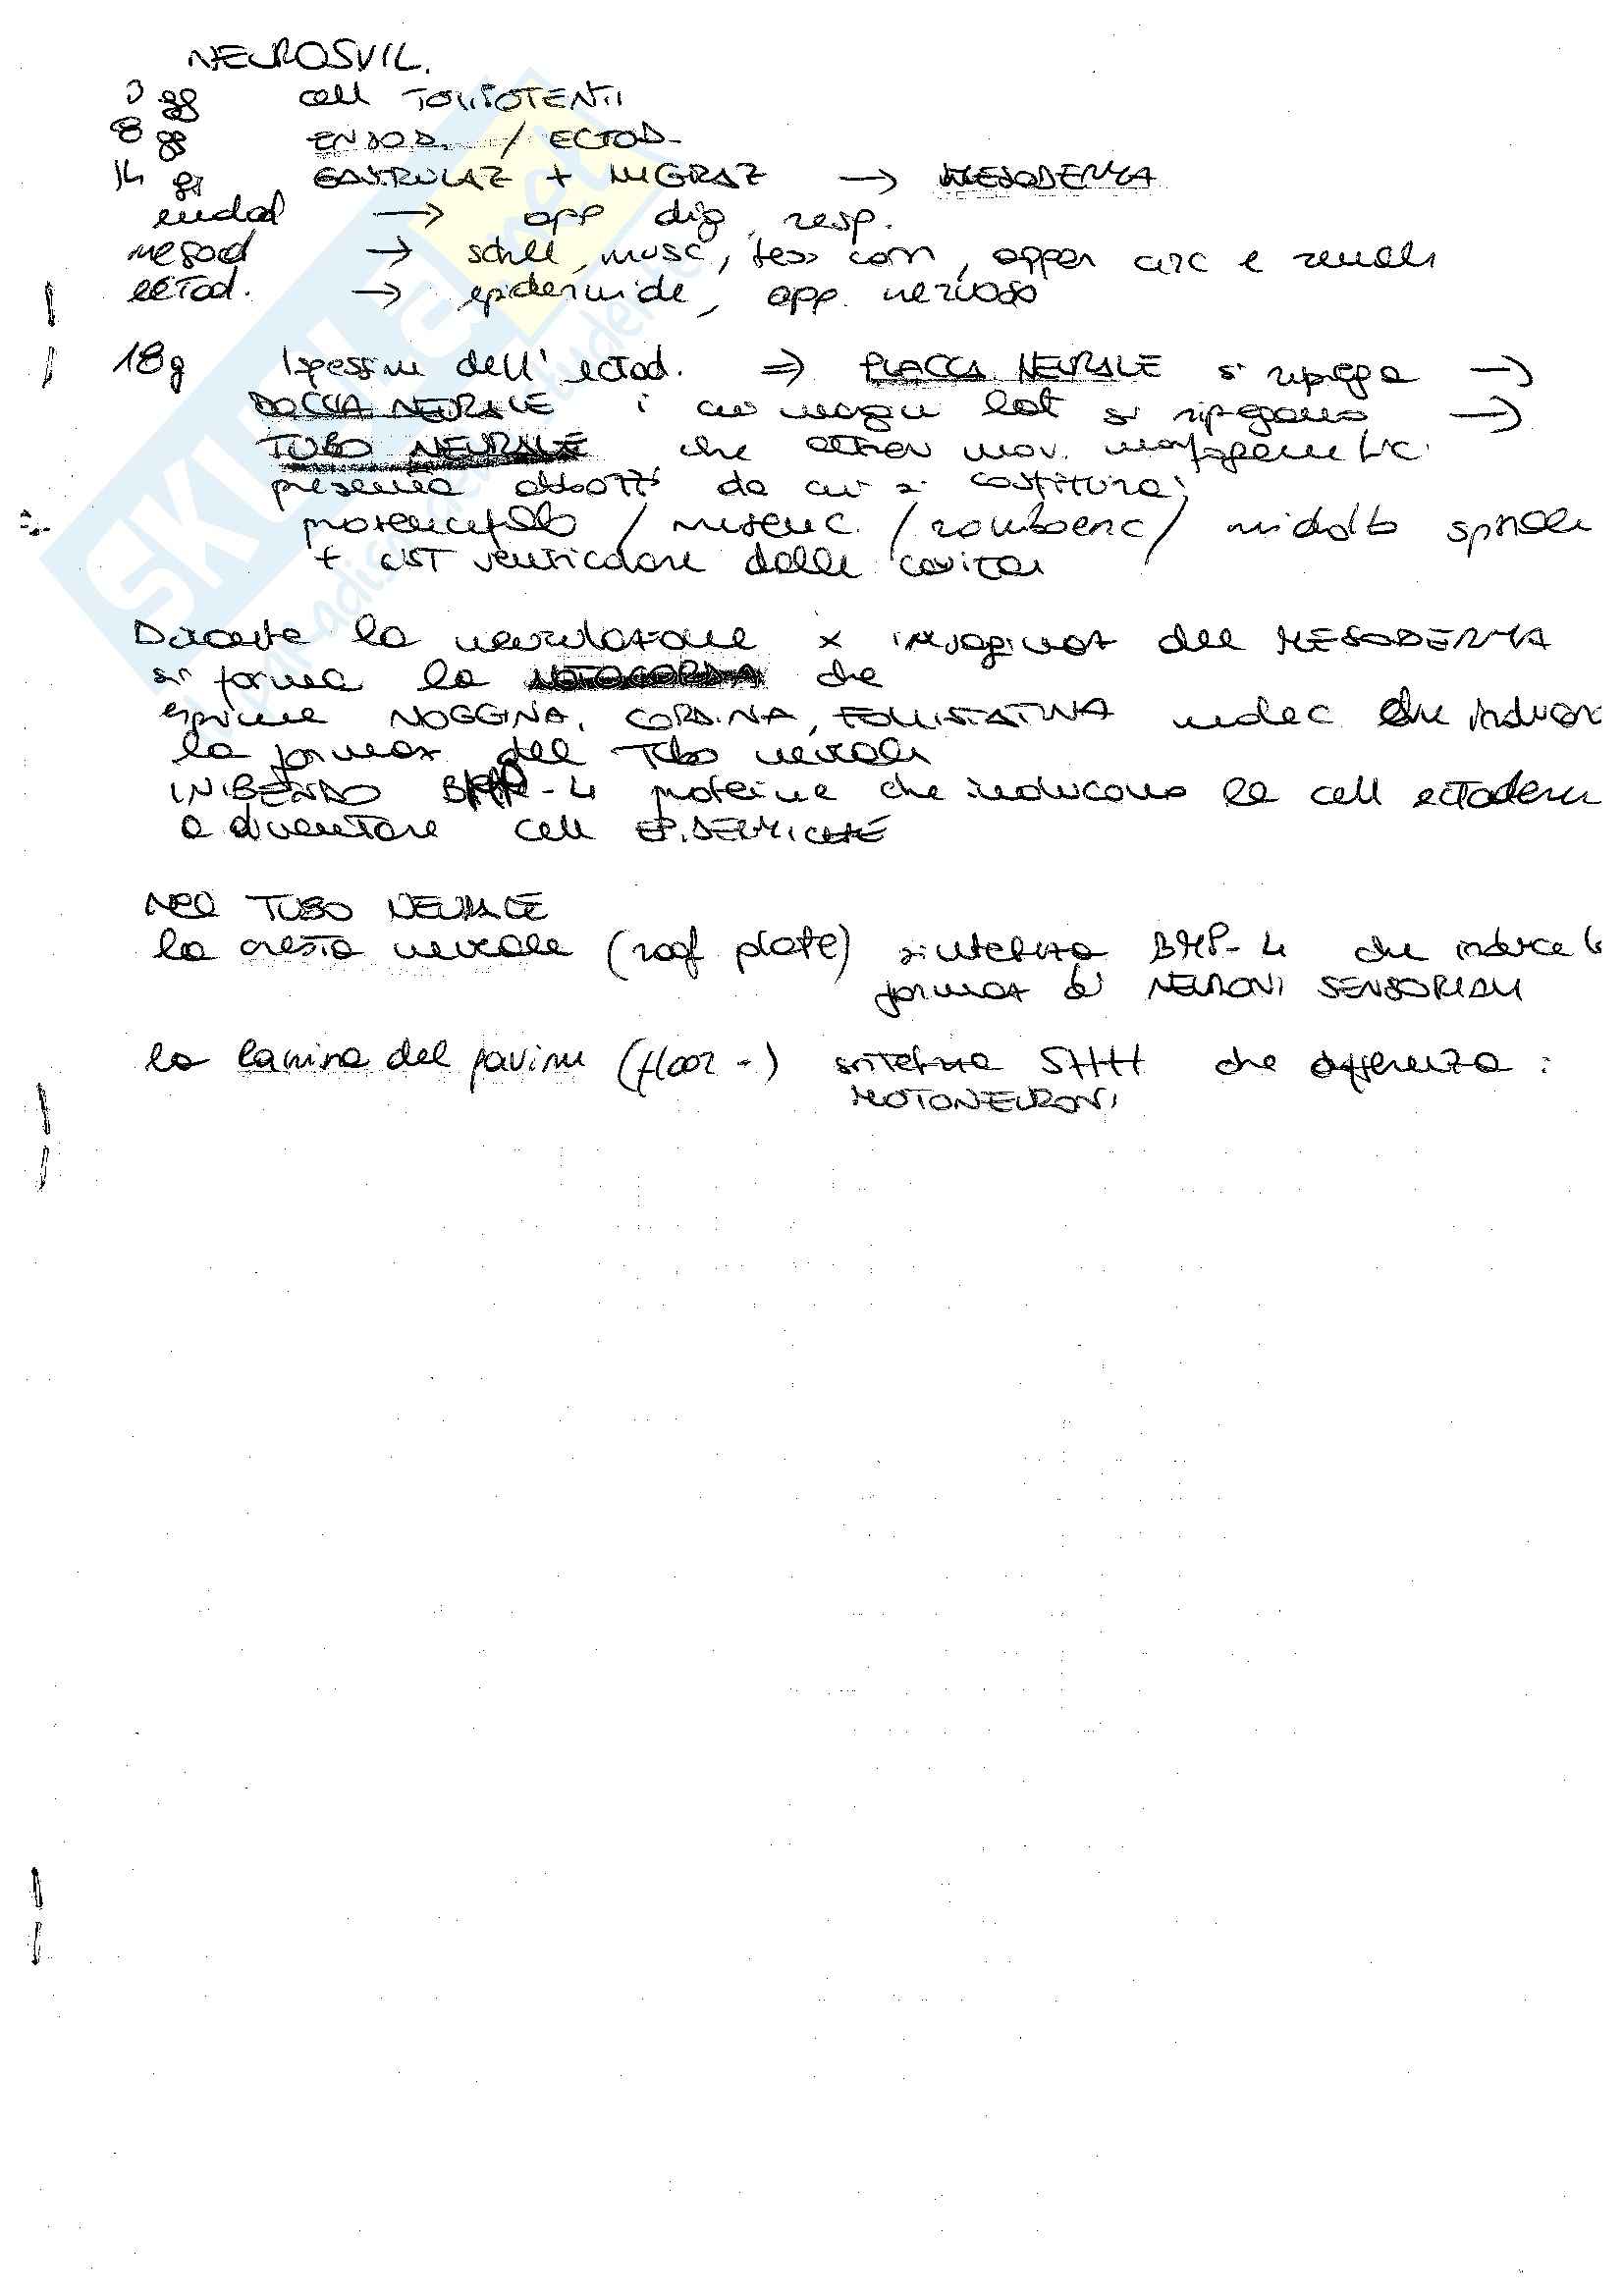 NEUROSVIL.
3 gg cell TOTIPOTENTI
8 gg ENDOD. / ECTOD.
14 gg GASTRULAZ + MIGRAZ → MESODERMA
endod → app dig, resp.
mesod → schel, musc, tess conn, appar circ e renale
ectod. → epidermide, app. nervoso
18g Ispessim dell' ectod. ⇒ PLACCA NEURALE si ripiega →
DOCCIA NEURALE i cui margini lat si ripiegano →
TUBO NEURALE che attrav mov. morfogenetic.
presenta abbozzi da cui si costituirà;
prosencefalo / mesenc. / romboenc / midollo spinale
+ SIST ventricolare delle cavità
Durante la neurulazione x invaginaz del MESODERMA
si forma la NOTOCORDA che
esprime NOGGINA, CORDINA, FOLLISTATINA molec che inducon
la formaz del Tubo neurale
INIBENDO BMP-4 proteine che inducono le cell ectoderm
a diventare cell EPIDERMICHE
NEL TUBO NEURALE
la cresta neurale (roof plate) sintetizza BMP-4 che induce la
formaz di NEURONI SENSORIALI
la lamina del pavim (floor -) sintetizza SHH che differenza :
MOTONEURONI
SKUOLA